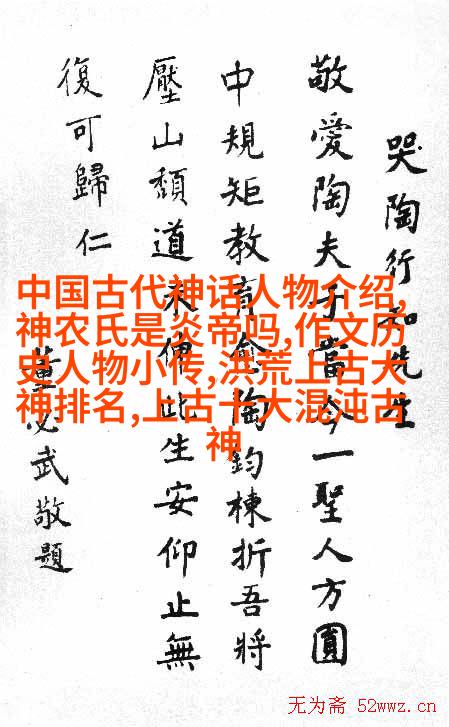 哭陶行知先生
敬愛陶夫子當今一聖人方圓
中規矩教育愈陶鈞棟折吾將
壓山頹道未此生安仰止無
復可歸仁
董必武敬題
中国古代神话人物介绍,
神农氏是炎帝吗,作文历
史人物小传,洪荒上古大
神排名,上古十大混沌古
神
无为斋 52wwz.cn